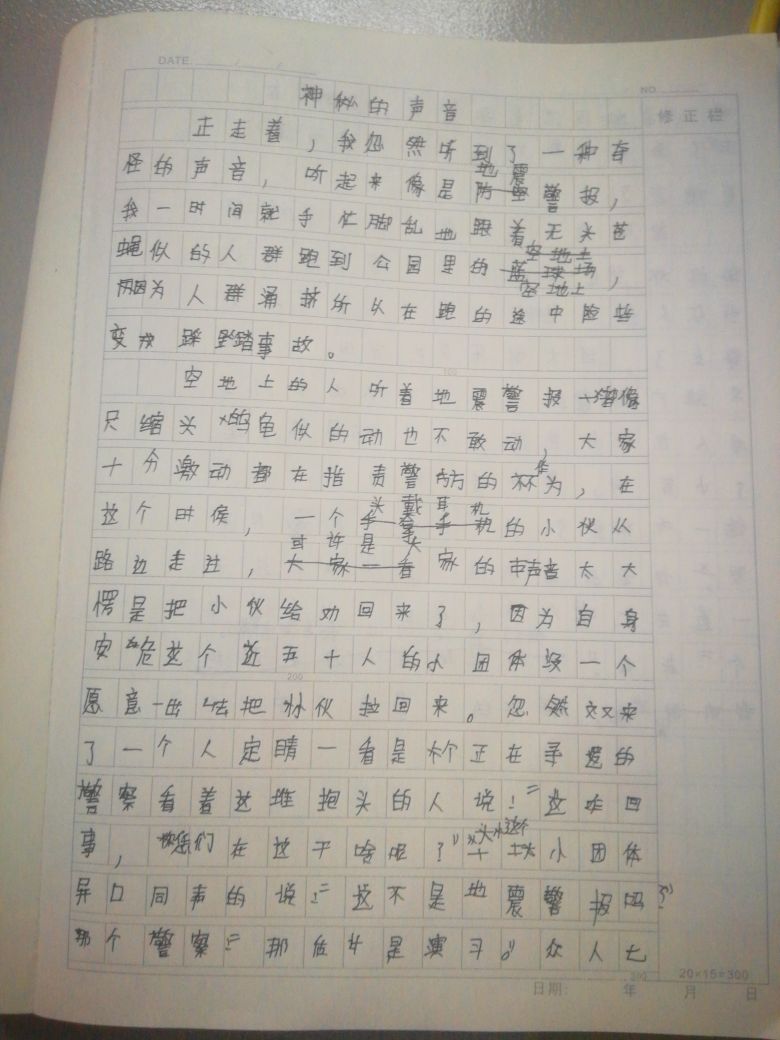 DATE
NO
修正栏
神秘的声音
正走着，我忽然听到了一种奇
怪的声音，听起来像是地震警报，
我一时间就手忙脚乱地跟着无头苍
蝇似的人群跑到公园里的空地上，
因为人群涌挤所以在跑的途中险些
变成踩踏事故。
空地上的人听着地震警报声像
只缩头乌龟似的动也不敢动，大家
十分激动都在指责警方的不作为，在
这个时候，一个头戴耳机的小伙从
路边走过，或许是大家的声音太大
愣是把小伙给劝回来了，因为自身
安危这个近五十人的小团体没一个
愿意出去把小伙拉回来。忽然又来
了一个人定睛一看是个正在巡逻的
警察看着这堆抱头的人说："这咋回
事，您们在这干啥呢？"这个小团体
异口同声的说："这不是地震警报吗？"
那个警察："那只是演习。"众人七
100
200
300
20×15=300
日期： 年 月 日